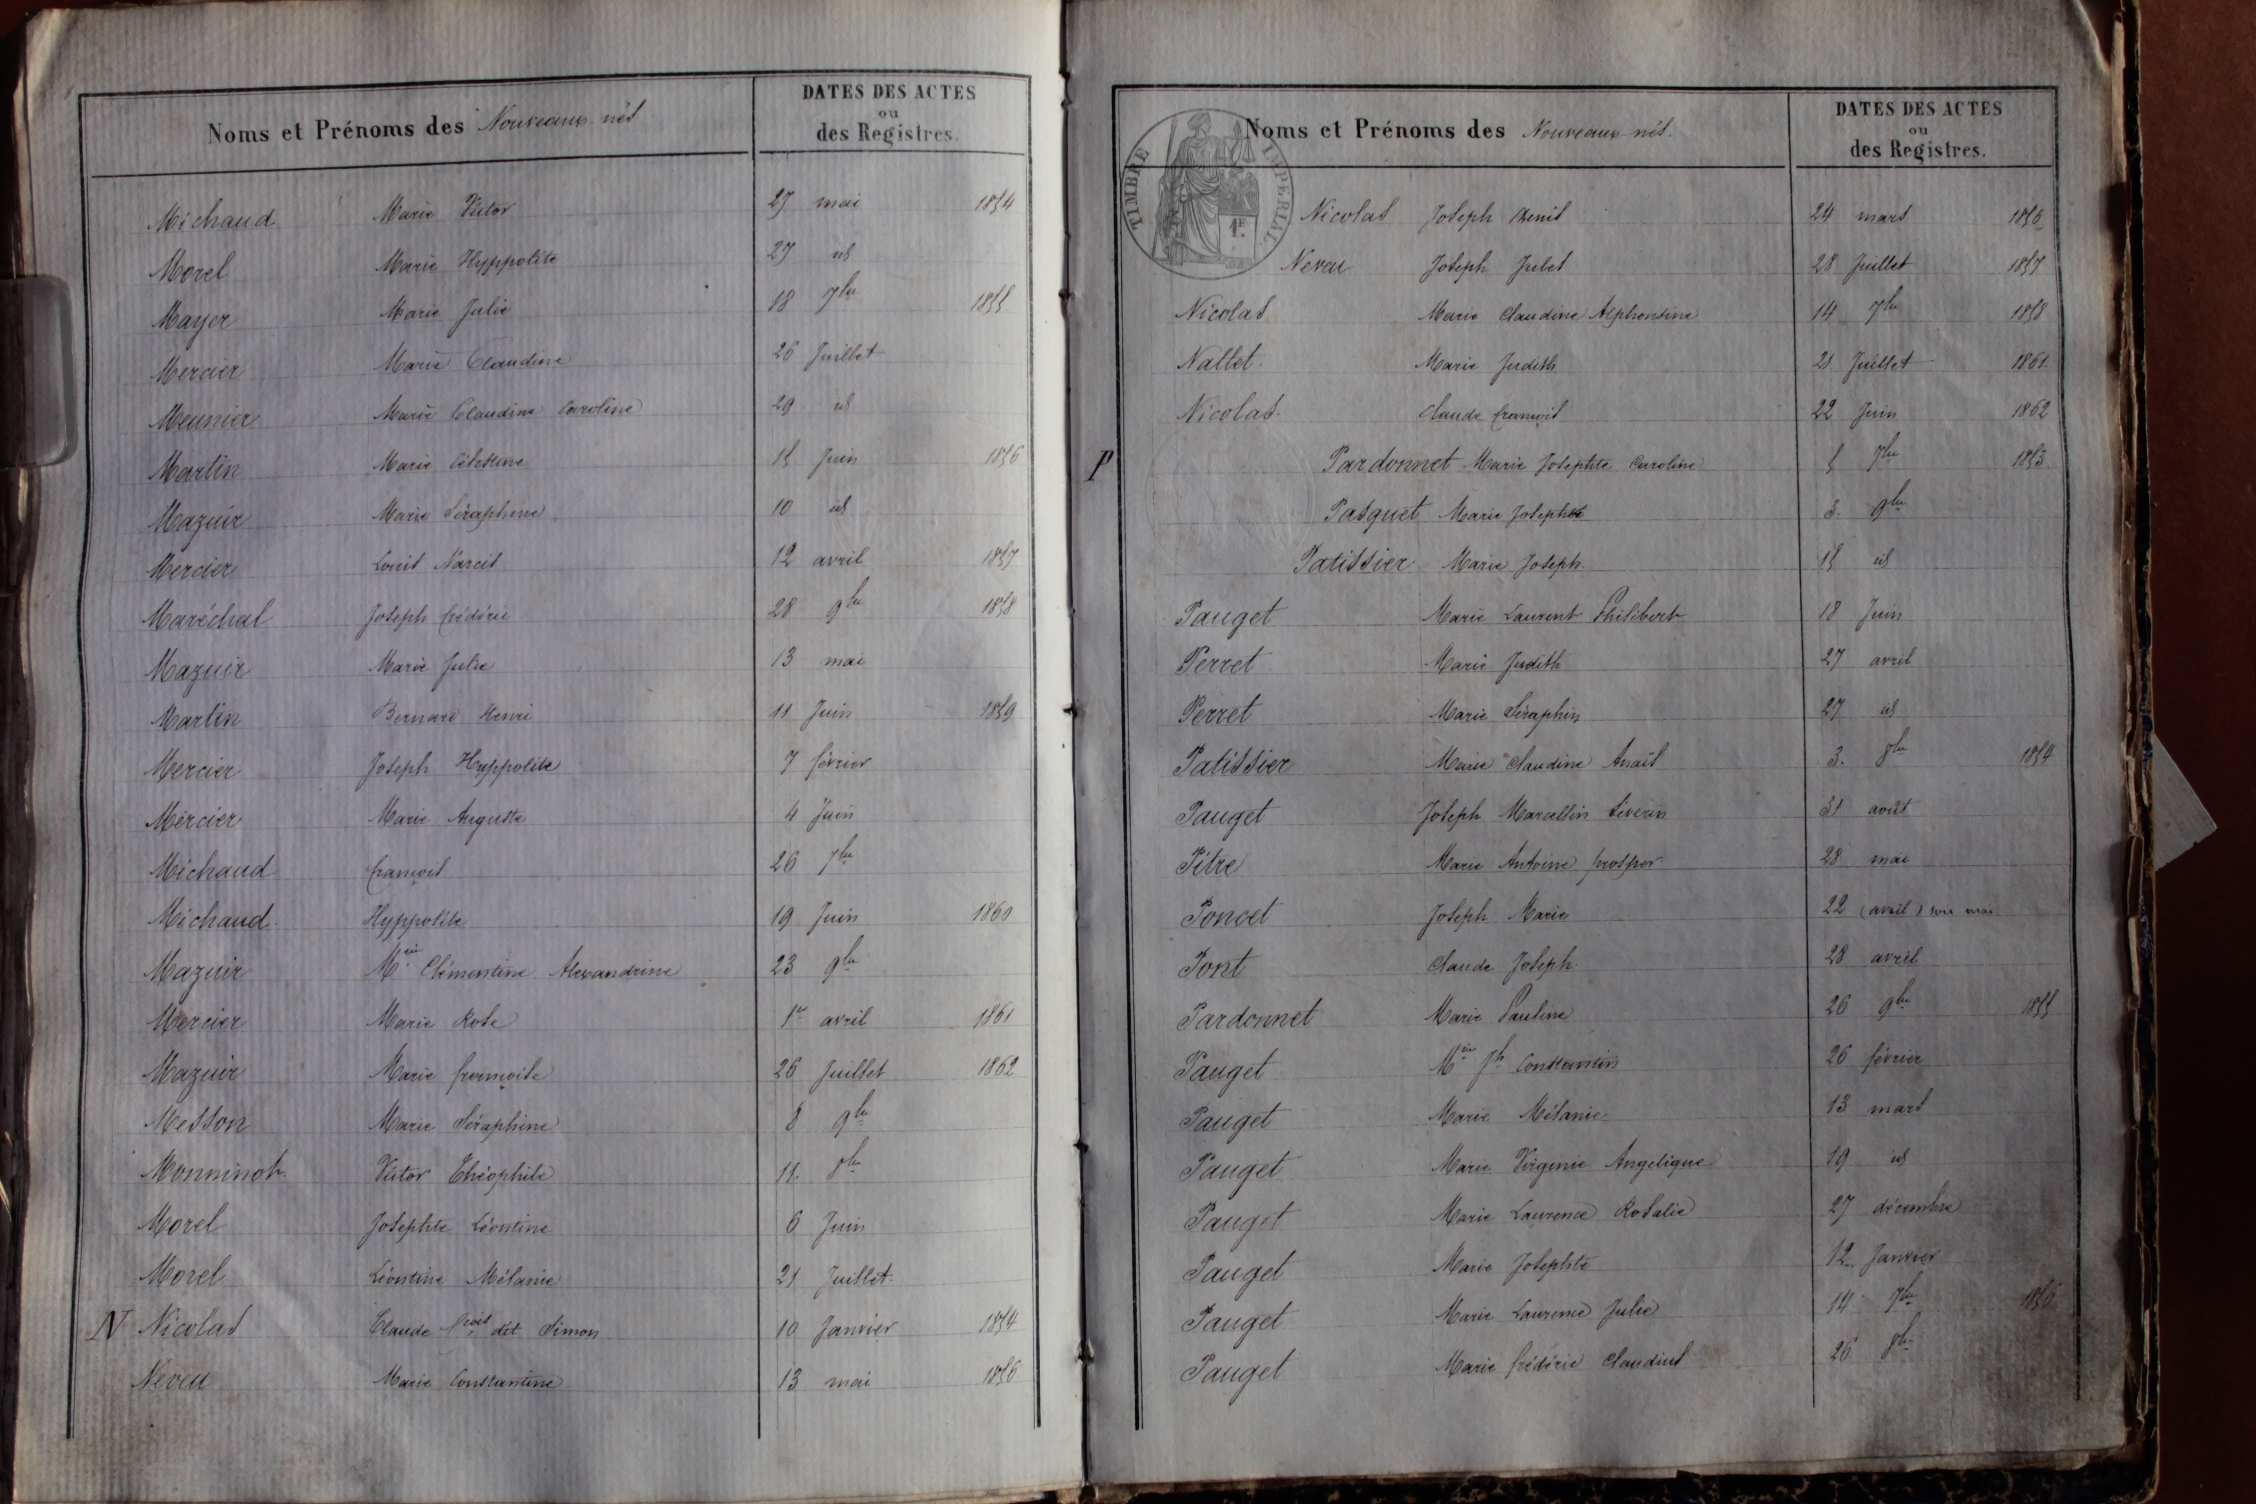 Noms et Prénoms des Nouveaux nés
DATES DES ACTES
ou
des Registres.
Michaud Marie Victor 27 mai 1854
Morel Marie Hyppolite 27 id
Mayer Marie Julie 18 7bre 1855
Mercier Marie Claudine 26 Juillet
Meunier Marie Claudine Caroline 29 id
Martin Marie Célestine 15 Juin 1856
Mazuir Marie Séraphine 10 id
Mercier Louis Narcis 12 avril 1857
Maréchal Joseph frédéric 28 9bre 1858
Mazuir Marie Julie 13 mai
Martin Bernard Henri 11 Juin 1859
Mercier Joseph Hyppolite 7 février
Mercier Marie Auguste 4 Juin
Michaud françois 26 7bre
Michaud Hyppolite 19 Juin 1860
Mazuir Mie Clémentine Alexandrine 23 9bre
Mercier Marie Rose 1er avril 1861
Mazuir Marie françoise 26 Juillet 1862
Messon Marie Séraphine 8 9bre
Monnnot Victor Théophile 11. 8bre
Morel Josephte Léontine 6 Juin
Morel Léontine Mélanie 21 Juillet
N Nicolas Claude fçois dit Simon 10 Janvier 1854
Neveu Marie Constantine 13 mai 1856
TIMBRE IMPÉRIAL
Noms et Prénoms des Nouveaux nés.
DATES DES ACTES
ou
des Registres.
Nicolas Joseph Denis 24 mars 1856
Neveu Joseph Jules 28 Juillet 1857
Nicolas Marie Claudine Alphonsine 14 7bre 1858
Nallet Marie Judith 21 Juillet 1861
Nicolas Claude françois 22 Juin 1862
P Pardonnet Marie Josephte Caroline 5 7bre 1853
Pasquet Marie Josephte 3. 9bre
Patissier Marie Joseph 15 id
Pauget Marie Laurent Philibert 18 Juin
Perret Marie Judith 27 avril
Perret Marie Séraphin 27 id
Patissier Marie Claudine Anaïs 3. 8bre 1854
Pauget Joseph Marcellin Séverin 31 août
Pitre Marie Antoine prosper 28 mai
Poncet Joseph Marie 22 (avril) mai
Pont Claude Joseph 28 avril
Pardonnet Marie Pauline 26 9bre 1855
Pauget Mie Jh Constantin 26 février
Pauget Marie Mélanie 13 mars
Pauget Marie Virginie Angelique 19 id
Pauget Marie Laurence Rosalie 27 décembre
Pauget Marie Josephte 12 Janvier
Pauget Marie Laurence Julie 14 7bre 1856
Pauget Marie frédéric Claudius 26 8bre